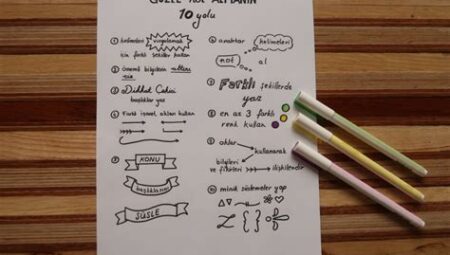 GÜZEL NOT ALMANIN
10 yolu
1 kelimeleri vurgulamak
için farklı şekiller kullan
2 Önemli bilgilerin altını
çiz
3 Dikkat Çekici
başlıklar yaz
4 Farklı işaret okları kullan
5 KONU
başlıklarını
SÜSLE
6 anahtar kelimeleri
not al
7 Farklı şekillerde
yaz
8 en az 3 farklı
renk kullan
9 oklar kullanarak
bilgileri
ve fikirleri ilişkilendir
10 minik süslemeler yap